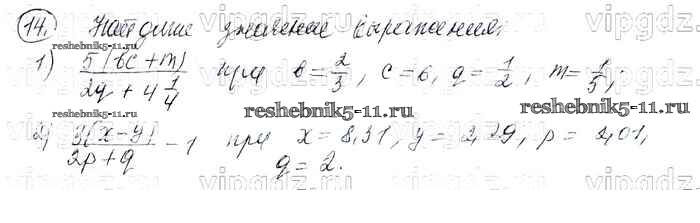 14. Найдите значение выражения:
1) 5(bc+m) / 2q + 4 1/4 при b = 2/3, c = 6, q = 1/2, m = 1/5;
reshebnik5-11.ru
reshebnik5-11.ru
reshebnik5-11.ru
2) 3(x-y) / 2p+q - 1 при x = 8,31, y = 2,29, p = 2,01,
q = 2.
vipgdz.ru vipgdz.ru vipgdz.ru vipgdz.ru